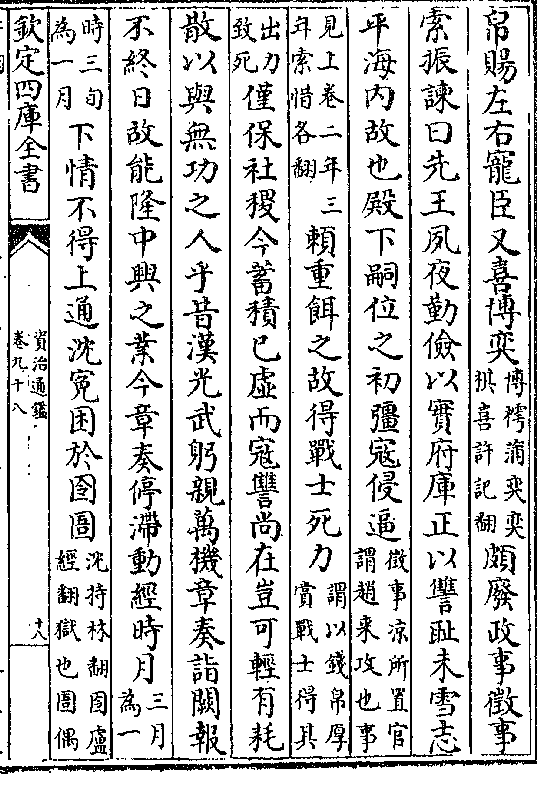 帛賜左右寵臣又喜博奕博摴蒱奕奕棋喜許記翻頗廢政事徵事
索振諫曰先王夙夜勤儉以實府庫正以讐恥未雪志
平海内故也殿下嗣位之初彊寇侵逼徵事涼所置官謂趙來攻也事
見上卷二年三年索惜各翻賴重餌之故得戰士死力謂以錢帛厚賞戰士得其
出力致死僅保社稷今蓄積已虛而寇讐尚在豈可輕有耗
散以與無功之人乎昔漢光武躬親萬機章奏詣闕報
不終日故能隆中興之業今章奏停滯動經時月三月為一
時三旬為一月下情不得上通沈寃困於囹圄沈持林翻囹盧經翻獄也圄偶
欽定四庫全書
資治通鑑
卷九十八
十八